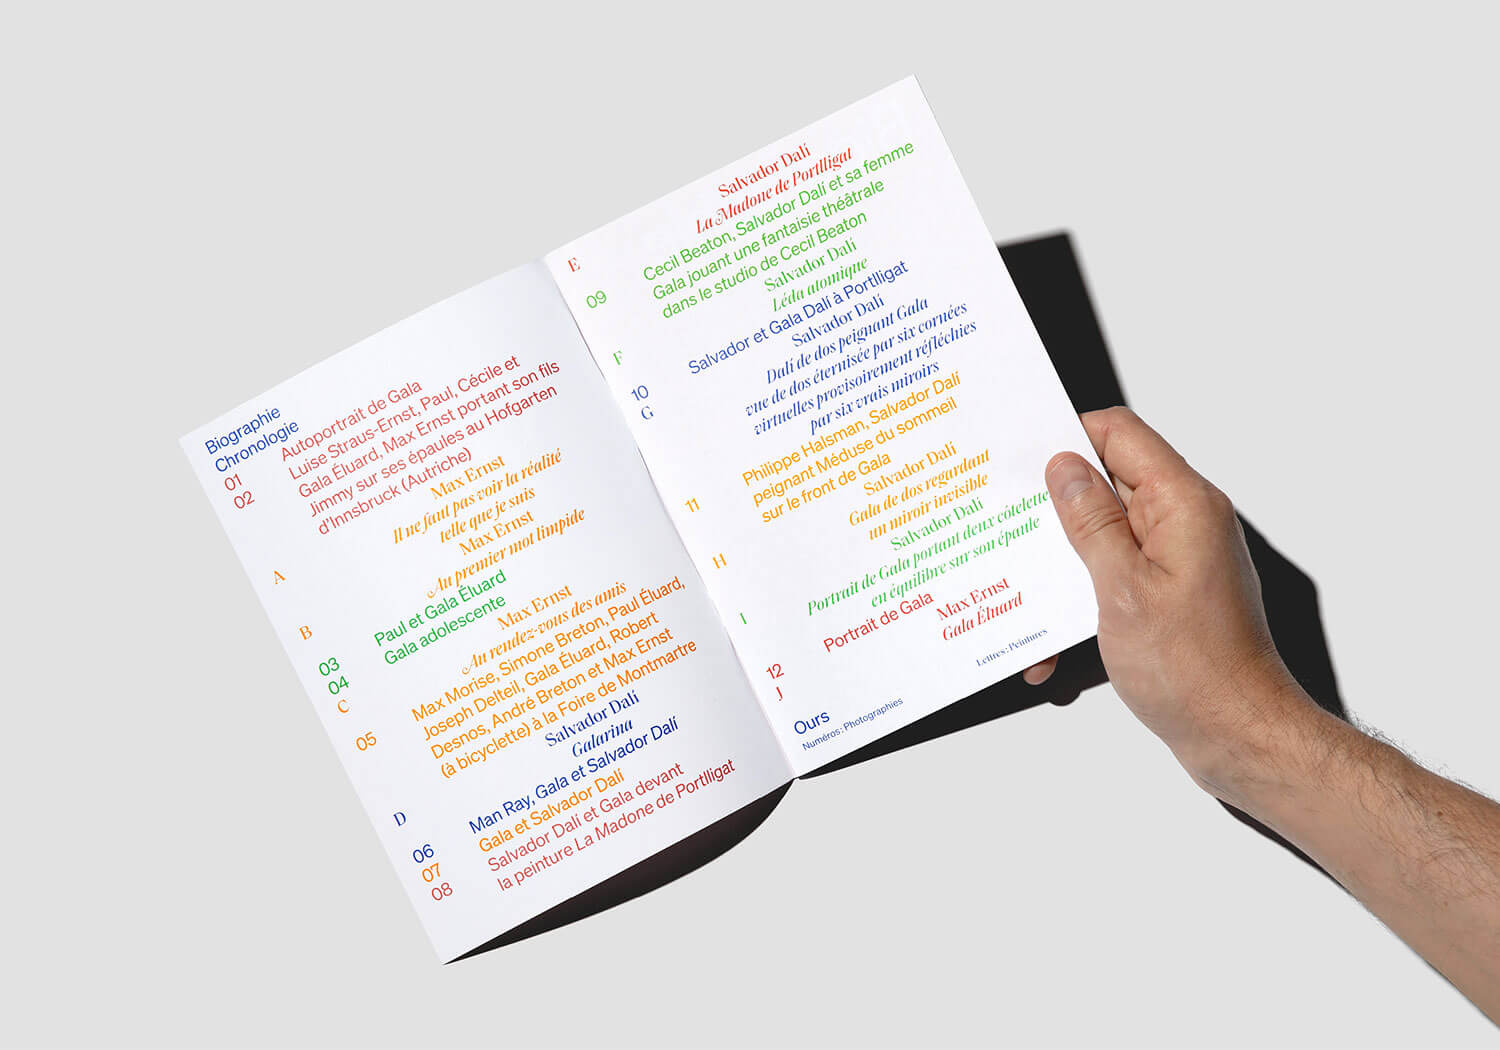 Biographie
Chronologie
01
Autoportrait de Gala
02
Luise Straus-Ernst, Paul, Cécile et
Gala Éluard, Max Ernst portant son fils
Jimmy sur ses épaules au Hofgarten
d'Innsbruck (Autriche)
A
Max Ernst
Il ne faut pas voir la réalité
telle que je suis
B
Max Ernst
Au premier mot limpide
03
Paul et Gala Éluard
04
Gala adolescente
C
Max Ernst
Au rendez-vous des amis
05
Max Morise, Simone Breton, Paul Éluard,
Joseph Delteil, Gala Éluard, Robert
Desnos, André Breton et Max Ernst
(à bicyclette) à la Foire de Montmartre
D
Salvador Dalí
Galarina
06
Man Ray, Gala et Salvador Dalí
07
Gala et Salvador Dalí
08
Salvador Dalí et Gala devant
la peinture La Madone de Portlligat
E
Salvador Dalí
La Madone de Portlligat
09
Cecil Beaton, Salvador Dalí et sa femme
Gala jouant une fantaisie théâtrale
dans le studio de Cecil Beaton
F
Salvador Dalí
Léda atomique
10
Salvador et Gala Dalí à Portlligat
G
Salvador Dalí
Dalí de dos peignant Gala
vue de dos éternisée par six cornées
virtuelles provisoirement réfléchies
par six vrais miroirs
11
Philippe Halsman, Salvador Dalí
peignant Méduse du sommeil
sur le front de Gala
H
Salvador Dalí
Gala de dos regardant
un miroir invisible
I
Salvador Dalí
Portrait de Gala portant deux côtelette
en équilibre sur son épaule
12
Portrait de Gala
J
Max Ernst
Gala Éluard
Ours
Numéros : Photographies
Lettres : Peintures